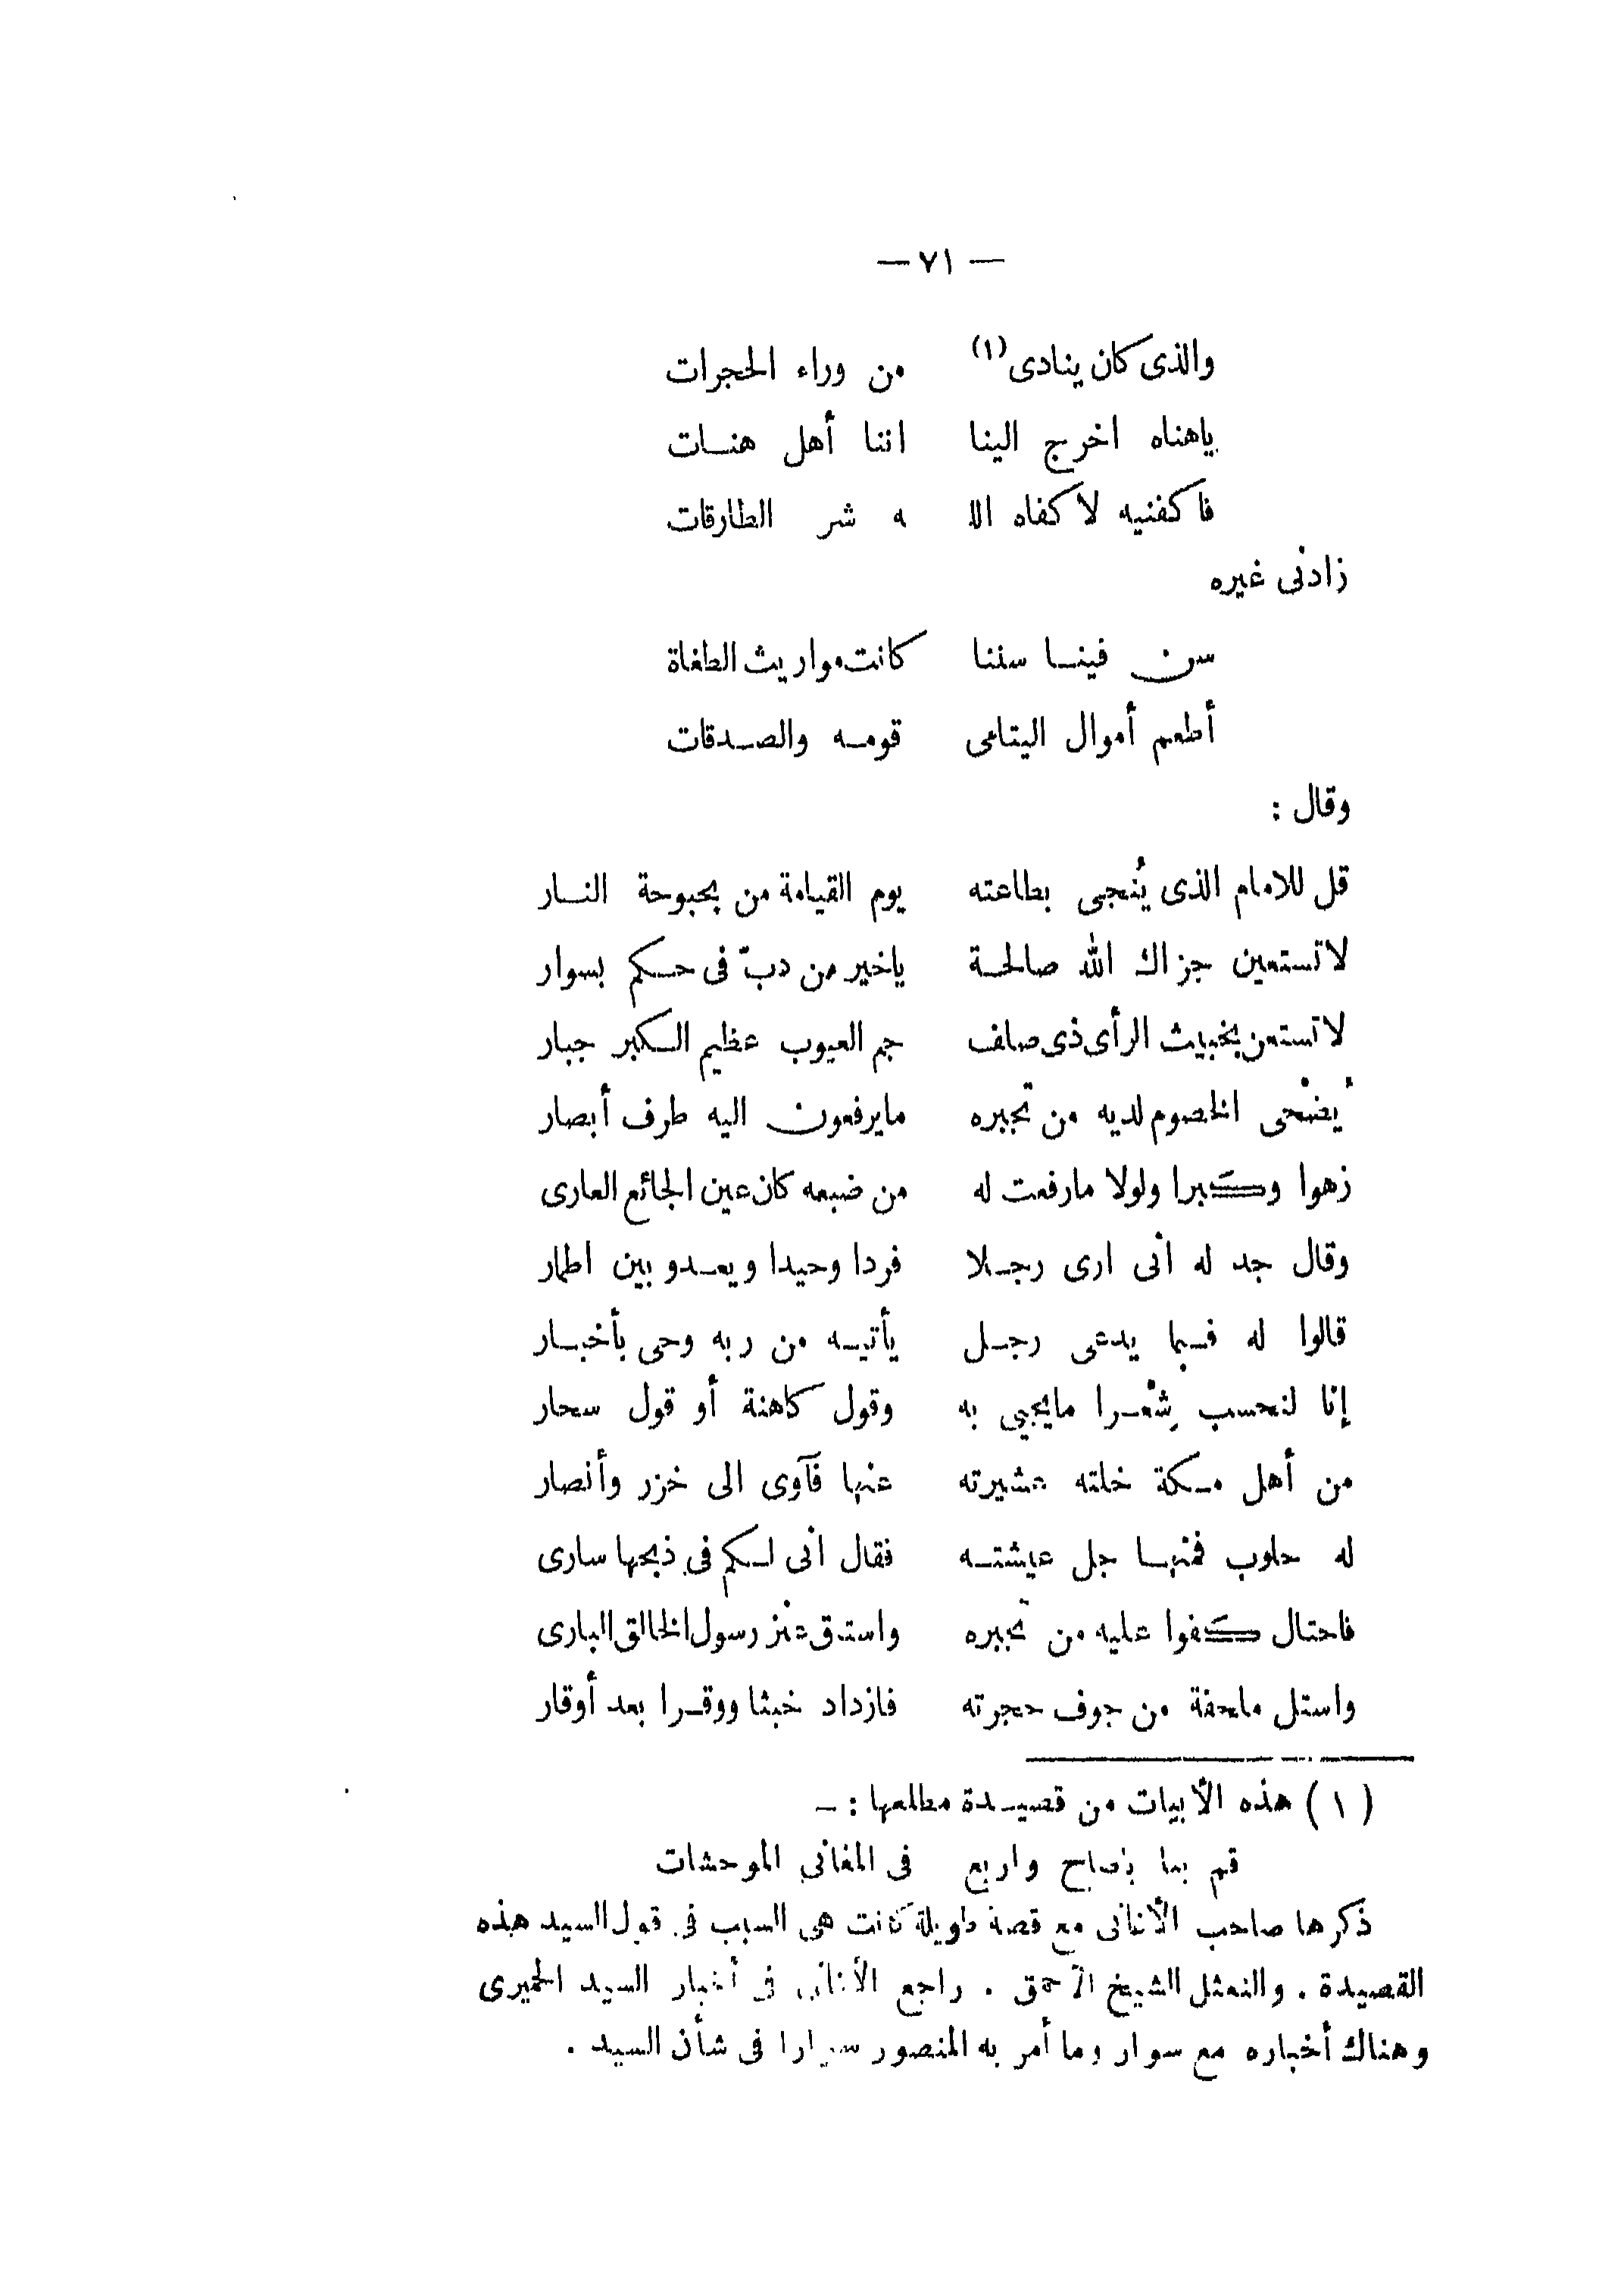 — ٧١ —
والذى كان ينادى (١) من وراء الحجرات
ياهناه اخرج الينا اننا أهل هنات
فاكفنيه لا كفاه اللـ ـه شر الطارقات
زادنى غيره
سن فينا سننا كانت مواريث الطغاة
أطعم أموال اليتامى قومه والصدقات
وقال :
قل للامام الذى يُنجى بطاعته يوم القيامة من بحبوحة النار
لاتستعين جزاك الله صالحة ياخير من دبّ فى حكم بسوار
لاتستعن بخبيث الرأى ذى صلف جم العيوب عظيم الكبر جبار
يُضْحى الخصوم لديه من تجبره مايرفعون اليه طرف أبصار
زهوا وكبرا ولولا مارفعت له من ضبعه كان عين الجائع العارى
وقال جد له انى ارى رجلا فردا وحيدا ويعدو بين اطمار
قالوا له فبما يدعى رجل يأتيه من ربه وحى بأخبار
إنا لنحسب شِعْرا مايجيى به وقول كاهنة أو قول سحار
من أهل مكة خلته عشيرته عنها فآوى الى خزر وأنصار
له حلوب فمنها جل عيشته فقال انى لكم فى ذبحها سارى
فاحتال كفوا عليه من تجبره واستق عنز رسول الخالق البارى
واستل ملحفة من جوف حجرته فازداد خبثا ووقرا بعد أوقار
(١) هذه الأبيات من قصيدة مطلعها : –
قم بنا ياصاح واربع فى المغانى الموحشات
ذكرها صاحب الأغانى مع قصة طويلة كانت هى السبب فى قول السيد هذه
القصيدة . والنعثل الشيخ الأحمق . راجع الأغانى فى أخبار السيد الحميرى
وهناك أخباره مع سوار وما أمر به المنصور سوارا فى شأن السيد .